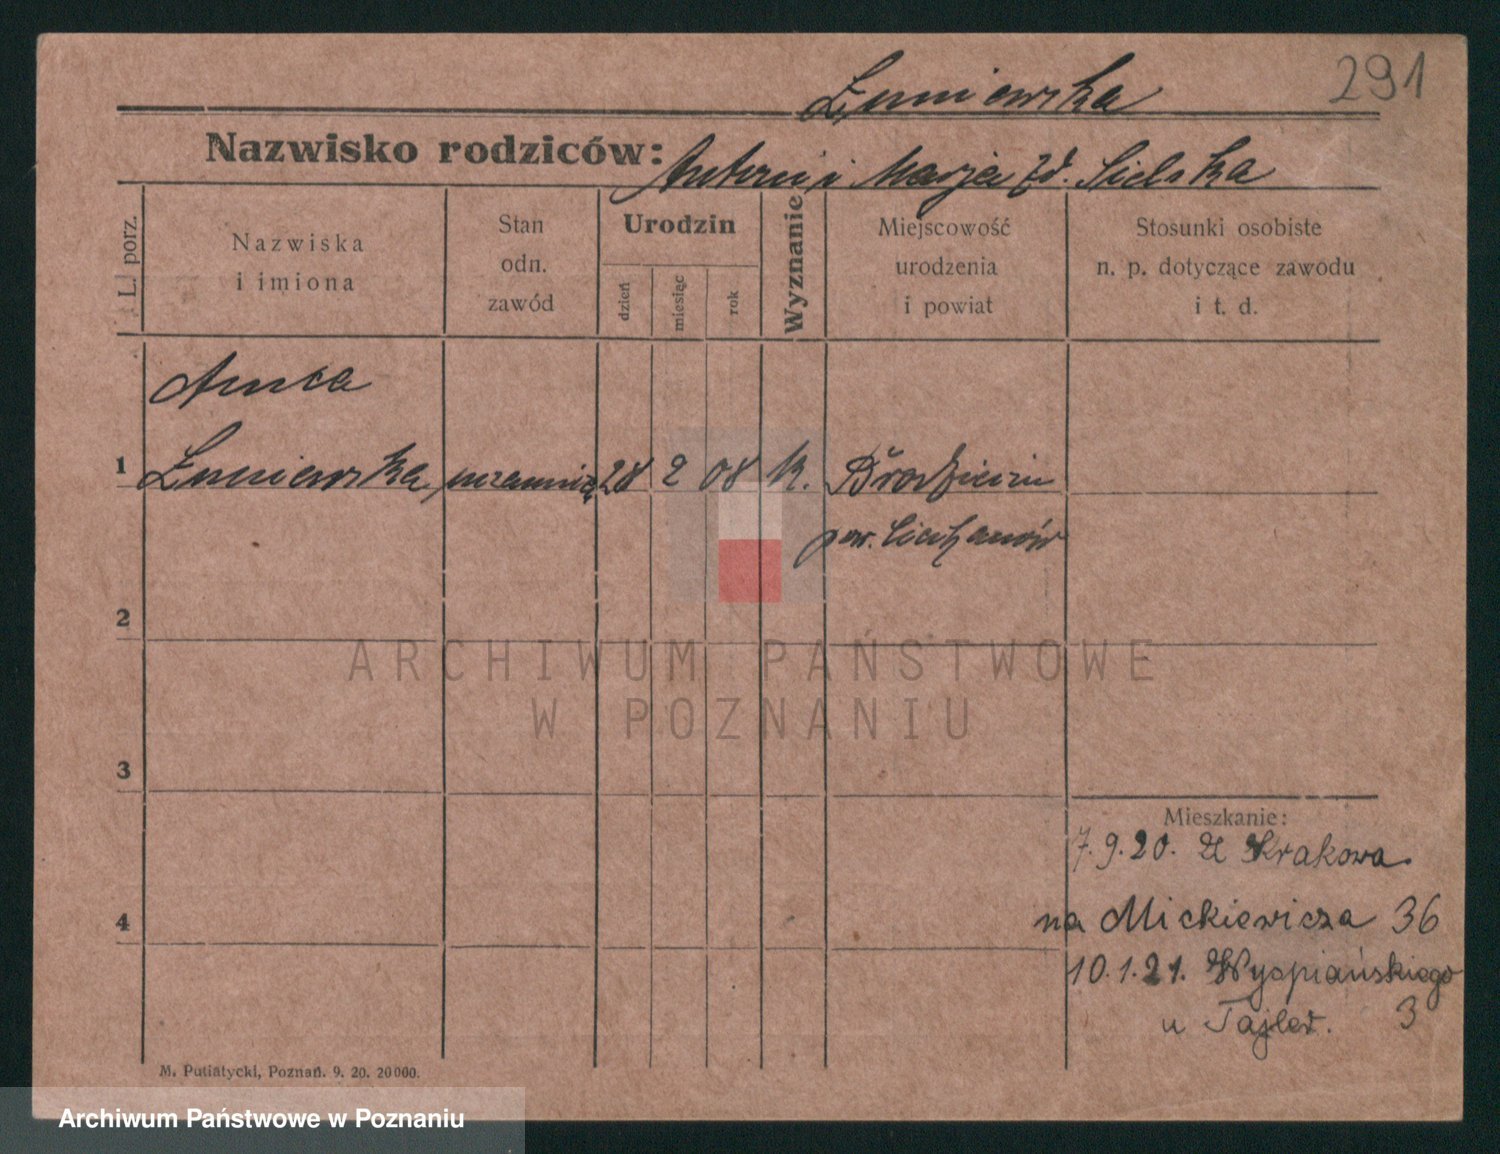 291
Łuniewska
Nazwisko rodziców: Antoni i Marja zd. Sielska
L. porz.
Nazwiska
i imiona
Stan
odn.
zawód
Urodzin
dzień
miesiąc
rok
Wyznanie
Miejscowość
urodzenia
i powiat
Stosunki osobiste
n. p. dotyczące zawodu
i t. d.
Anna
1 Łuniewska uczennica 28 2 08 k.
pow. Ciechanów
2
ARCHIWUM PAŃSTWOWE
W POZNANIU
3
Mieszkanie:
7.9.20. Z Krakowa.
na Mickiewicza 36
4
10.1.21. Wyspiańskiego
u 3
M. Putiatycki, Poznań. 9. 20. 20000.
Archiwum Państwowe w Poznaniu